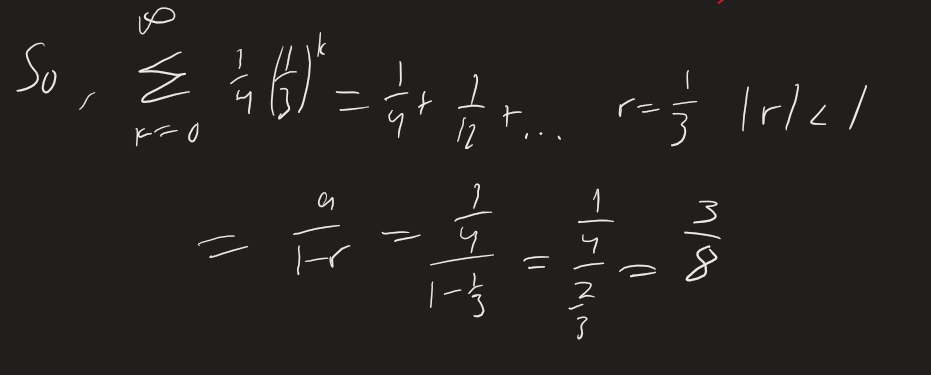 So, ∑_{k=0}^{∞} 1/4 (1/3)^k = 1/4 + 1/12 + ... r = 1/3 |r| < 1
= a/(1-r) = (1/4)/(1-1/3) = (1/4)/(2/3) = 3/8